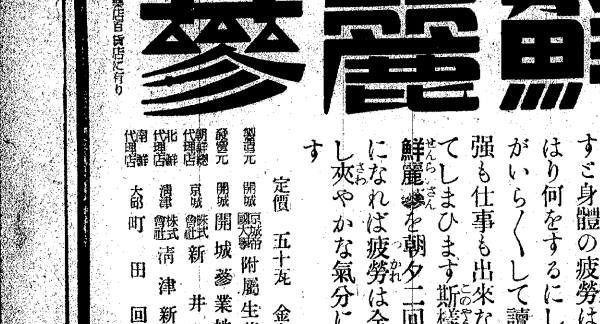 鮮麗蔘
すと身體の疲勞は
はり何をするにし
がいら〱して讀
强も仕事も出來な
てしまひます斯樣
鮮麗蔘を朝夕二回
になれば疲勞は全
し爽やかな氣分に
す
定價 五十瓦 金
製造元 開城 京城帝國大學 附屬生
發賣元 開城 開城蔘業
朝鮮總代理店 京城 株式會社 新井
北鮮代理店 淸津 株式會社 淸津新
南鮮代理店 大邱 町田回
店百貨店に有り